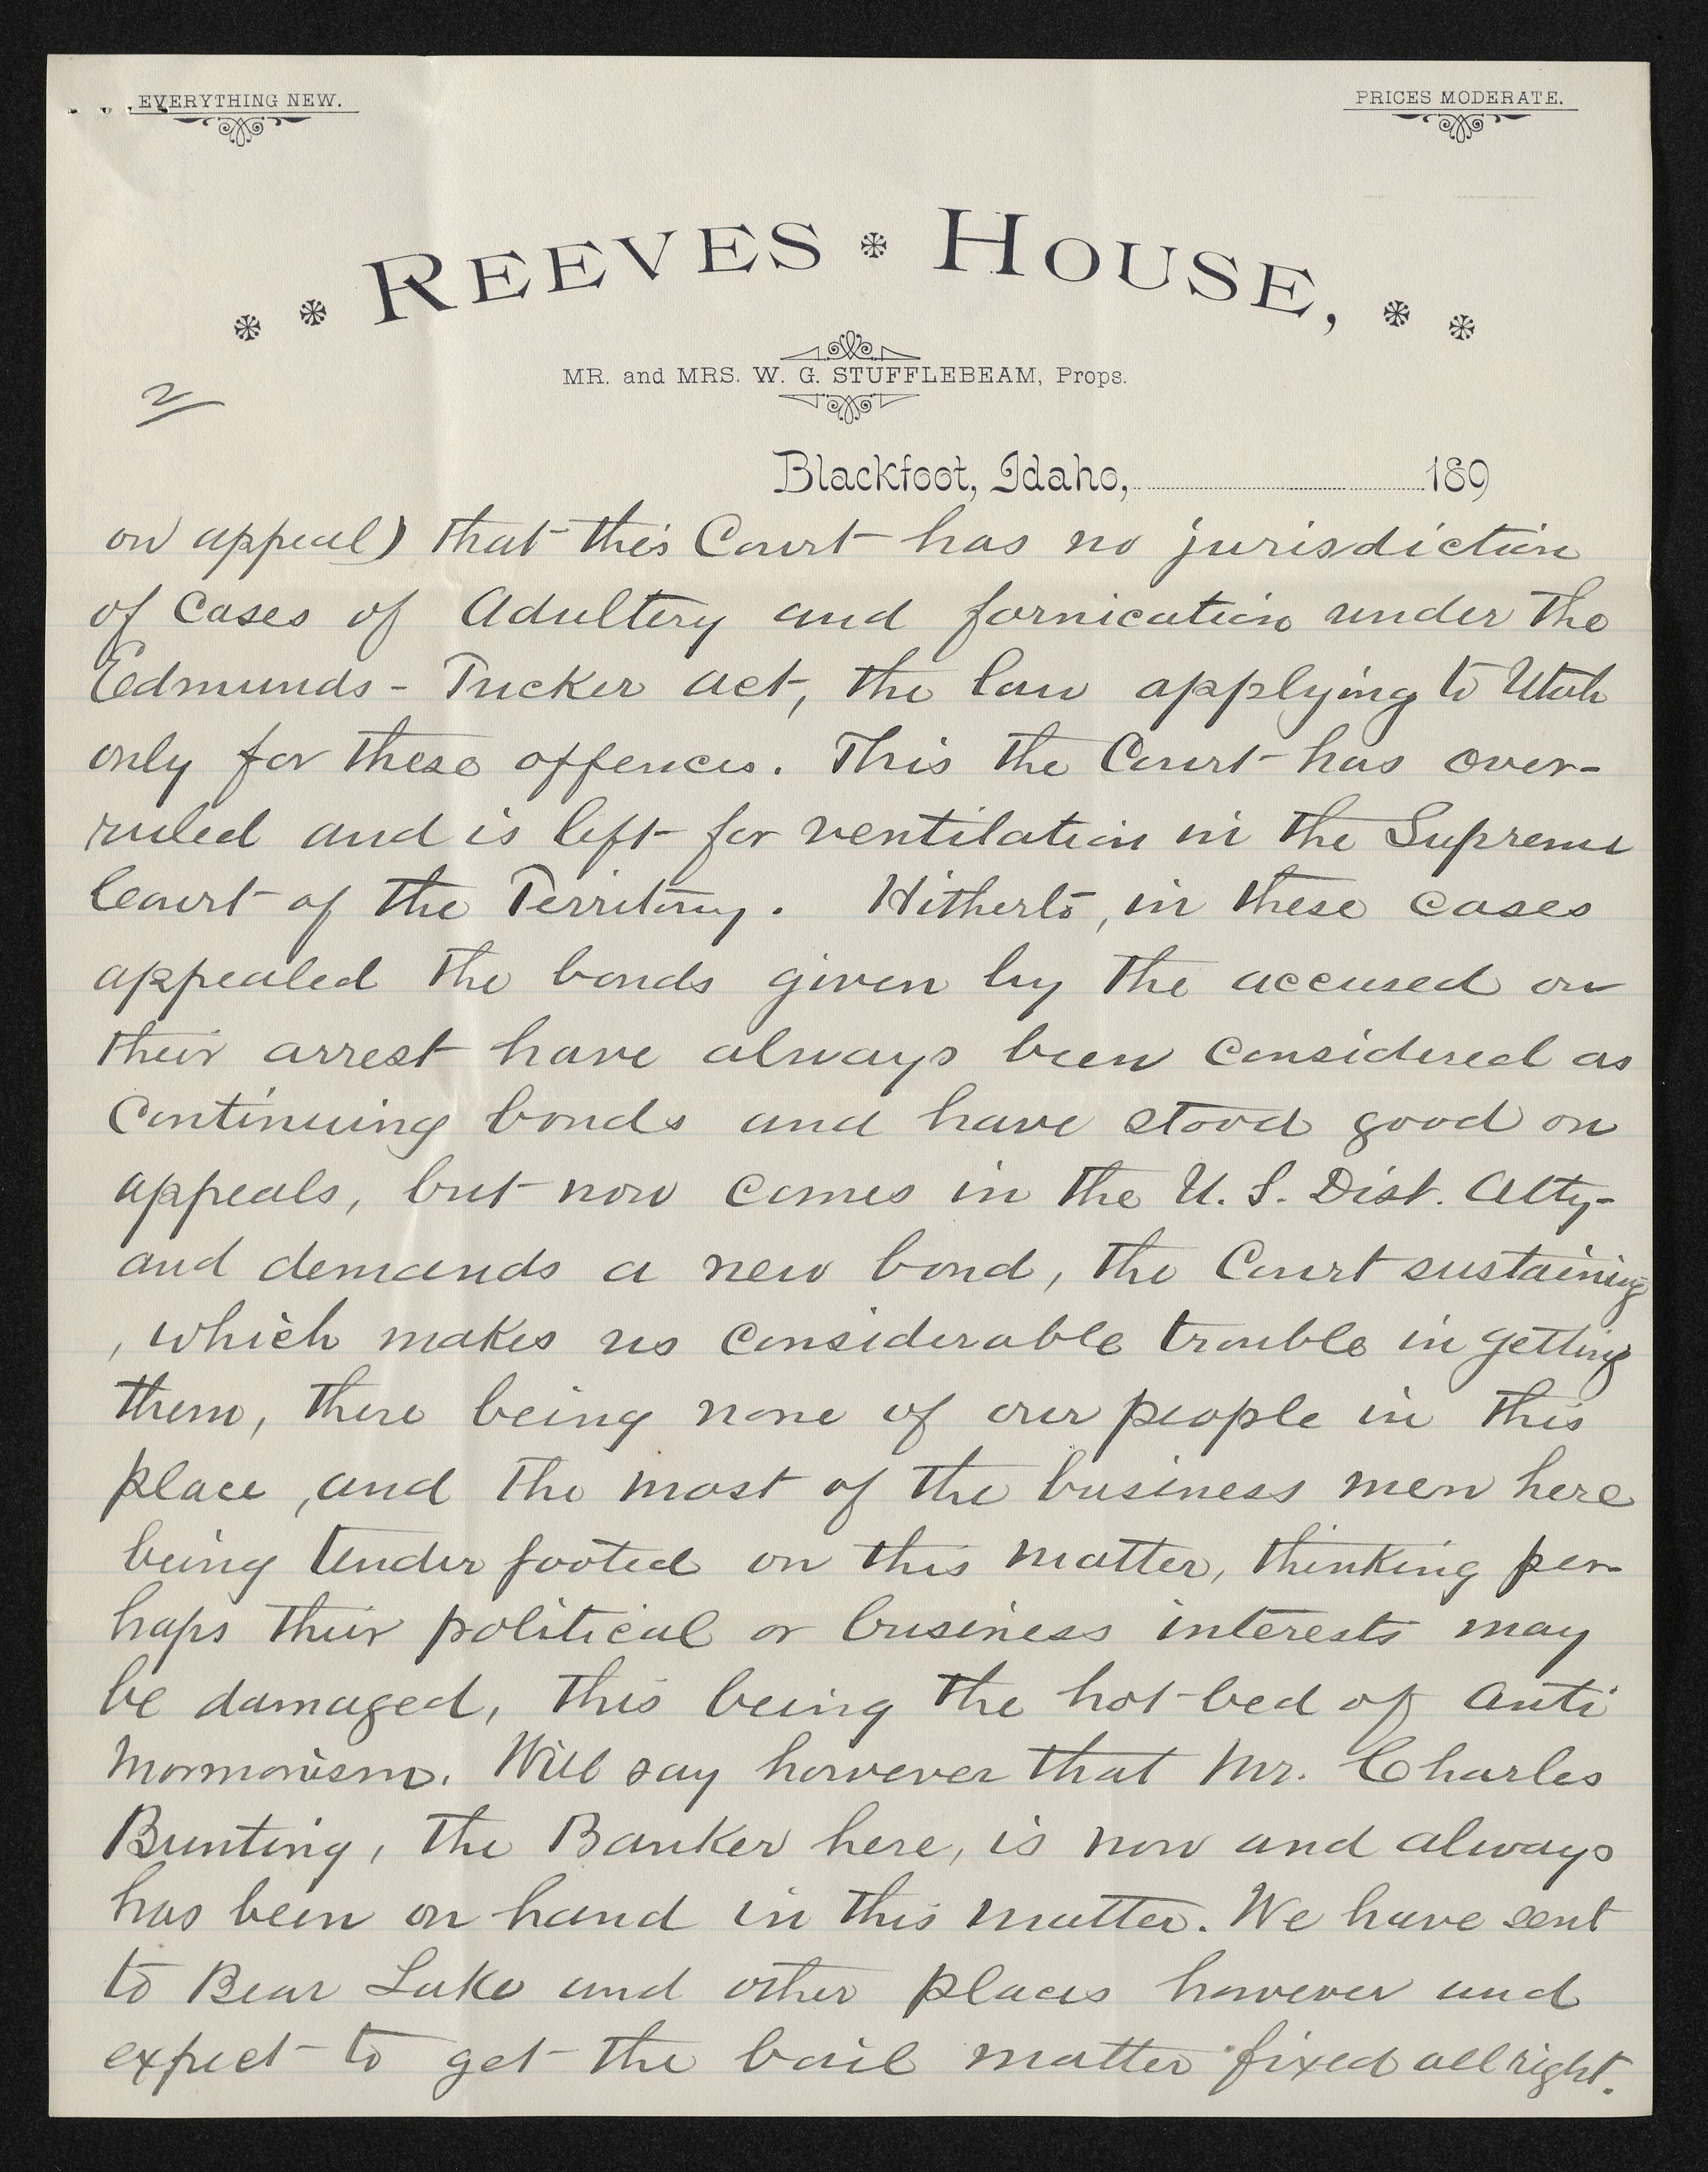 EVERYTHING NEW.
PRICES MODERATE.
REEVES HOUSE,
MR. and MRS. W. G. STUFFLEBEAM, Props.
2
Blackfoot, Idaho, 189
on appeal) that this Court has no jurisdiction
of Cases of Adultery and fornication under the
Edmunds - Tucker act, the law applying to Utah
only for these offences. This the Court has over-
ruled and is left for ventilation in the Supreme
Court of the Territory. Hitherto, in these cases
appealed the bonds given by the accused on
their arrest have always been considered as
Continuing bonds and have stood good on
appeals, but now comes in the U. S. Dist. Atty-
and demands a new bond, the Court sustaining
, which makes us considerable trouble in getting
them, there being none of our people in this
place, and the most of the business men here
being tender footed on this matter, thinking per-
haps their political or business interests may
be damaged, this being the hot-bed of Anti
Mormonism. Will say however that Mr. Charles
Bunting, the Banker here, is now and always
has been on hand in this matter. We have sent
to Bear Lake and other places however and
expect to get the bail matter fixed all right.